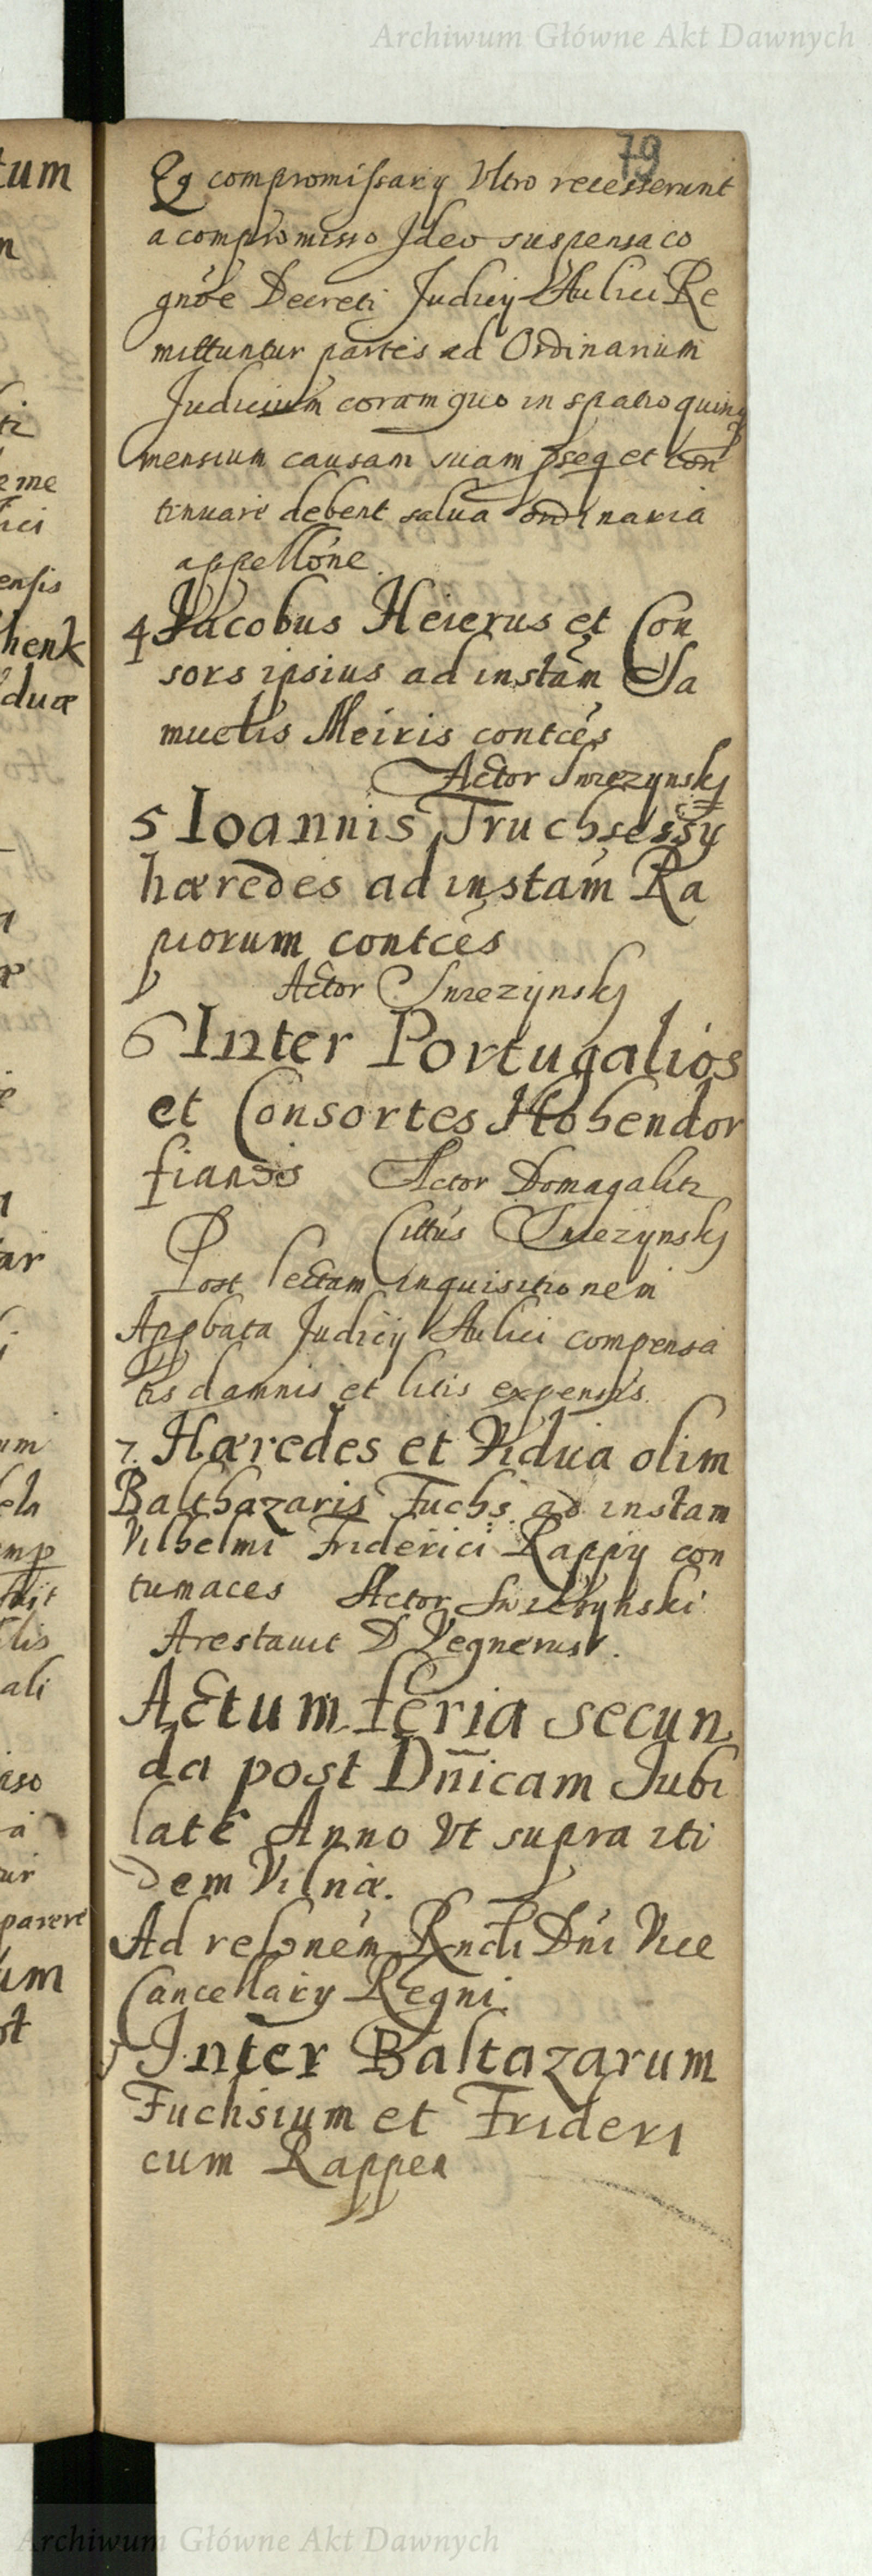 Archiwum Główne Akt Dawnych
79
Qq compromissarij Ultro recesserunt
a compromisso Ideo suspensa co
gnõe Decreti Judicij Aulici Re
mittuntur partes ad Ordinarium
Judicium coram quo in spatio quinq
mensium causam suam pseq et con
tinuare debent salua ordinaria
appellõne.
4 Jacobus Heierus et Con
sors ipsius ad instam Sa
muelis Meiris contces
Actor Swiezynskj
5 Ioannis Truchsessy
hæredes ad instam Ra
piorum contces
Actor Swiezynskj
6 Inter Portugalios
et Consortes Hohendor
fianos Actor Domagalitz
Cittus Swiezynskj
Post lectam inquisitionem
Appbata Judicij Aulici compensa
tis damnis et litis expensis.
7. Hæredes et Vidua olim
Balthazaris Fuchs. ad instam
Vilhelmi Friderici Rappy con
tumaces Actor Swiezynski
Arestauit D Vegnerus.
Actum feria secun
da post Dñicam Jubi
late Anno Vt supra iti
dem Vilnæ.
Ad relonem Rndi Dni Vice
Cancellarij Regni
Inter Baltazarum
Fuchsium et Frideri
cum Rappen
tum
n
eme
ici
ensis
henk
duæ
ar
um
ela
lis
ali
iso
parere
um
Archiwum Główne Akt Dawnych